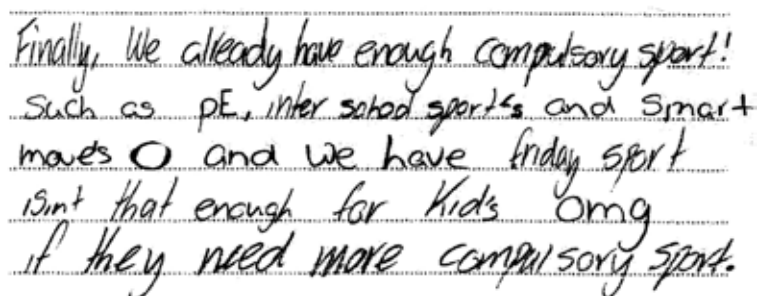 Finally, We already have enough compulsory sport!
Such as PE, inter school sport's and Smart
moves O and we have friday sport
isint that enough for Kid's omg
if they need more compulsory sport.